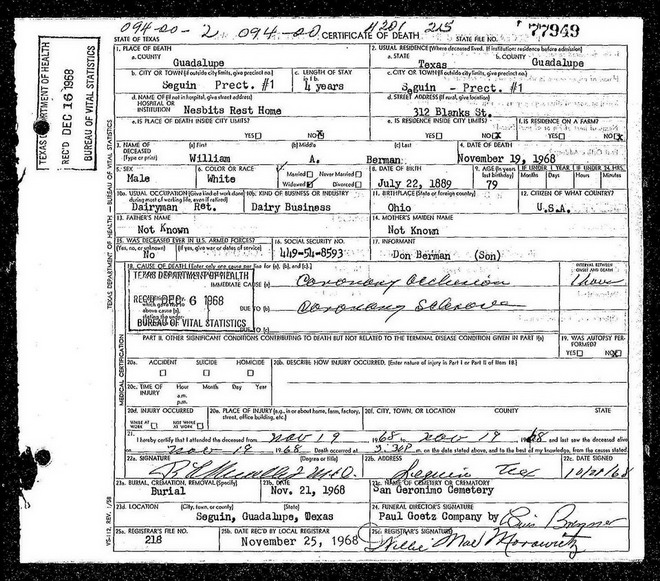 094-00-2 094-00 4201 215
STATE OF TEXAS CERTIFICATE OF DEATH STATE FILE NO. 77949
TEXAS DEPARTMENT OF HEALTH
REC'D DEC 16 1968
BUREAU OF VITAL STATISTICS
1. PLACE OF DEATH 2. USUAL RESIDENCE (Where deceased lived. If institution: residence before admission)
a. COUNTY Guadalupe a. STATE Texas b. COUNTY Guadalupe
b. CITY OR TOWN (If outside city limits, give precinct no.) Seguin Prect. #1 c. LENGTH OF STAY in 1 b. 4 years c. CITY OR TOWN (If outside city limits, give precinct no.) Seguin - Prect. #1
d. NAME OF (If not in hospital, give street address) HOSPITAL OR INSTITUTION Nesbits Rest Home d. STREET ADDRESS (If rural, give location) 312 Blanks St.
e. IS PLACE OF DEATH INSIDE CITY LIMITS? YES NO X e. IS RESIDENCE INSIDE CITY LIMITS? YES NO X f. IS RESIDENCE ON A FARM? YES NO X
3. NAME OF DECEASED (Type or print) (a) First William (b) Middle A. (c) Last Berman 4. DATE OF DEATH November 19, 1968
5. SEX Male 6. COLOR OR RACE White 7. Married Never Married Widowed Divorced 8. DATE OF BIRTH July 22, 1889 9. AGE (In years last birthday) 79 IF UNDER 1 YEAR Months Days IF UNDER 24 HRS. Hours Minutes
10a. USUAL OCCUPATION (Give kind of work done during most of working life, even if retired) Dairyman Ret. 10b. KIND OF BUSINESS OR INDUSTRY Dairy Business 11. BIRTHPLACE (State or foreign country) Ohio 12. CITIZEN OF WHAT COUNTRY? U.S.A.
13. FATHER'S NAME Not Known 14. MOTHER'S MAIDEN NAME Not Known
15. WAS DECEASED EVER IN U.S. ARMED FORCES? (Yes, no, or unknown) No (If yes, give war or dates of service) 16. SOCIAL SECURITY NO. 449-54-8593 17. INFORMANT Don Berman (Son)
18. CAUSE OF DEATH (Enter only one cause per line for (a), (b), and (c).) INTERVAL BETWEEN ONSET AND DEATH
TEXAS DEPARTMENT OF HEALTH
IMMEDIATE CAUSE (a) Coronary Occlusion 1 hour
REC'D DEC 6 1968
DUE TO (b) Coronary
BUREAU OF VITAL STATISTICS
DUE TO (c)
PART II. OTHER SIGNIFICANT CONDITIONS CONTRIBUTING TO DEATH BUT NOT RELATED TO THE TERMINAL DISEASE CONDITION GIVEN IN PART I(a) 19. WAS AUTOPSY PERFORMED? YES NO X
20a. ACCIDENT SUICIDE HOMICIDE 20b. DESCRIBE HOW INJURY OCCURRED. (Enter nature of injury in Part I or Part II of item 18.)
20c. TIME OF INJURY Hour a.m. p.m. Month Day Year
20d. INJURY OCCURRED WHILE AT WORK NOT WHILE AT WORK 20e. PLACE OF INJURY (e.g., in or about home, farm, factory, street, office building, etc.) 20f. CITY, TOWN, OR LOCATION COUNTY STATE
21. I hereby certify that I attended the deceased from Nov 19 1968 to Nov 19 1968 and last saw the deceased alive
on Nov 19 1968 Death occurred at 3:30P m. on the date stated above, and to the best of my knowledge, from the causes stated.
22a. SIGNATURE (Degree or title) M.D. 22b. ADDRESS Seguin Tex 22c. DATE SIGNED
23a. BURIAL, CREMATION, REMOVAL (Specify) Burial 23b. DATE Nov. 21, 1968 23c. NAME OF CEMETERY OR CREMATORY San Geronimo Cemetery
23d. LOCATION (City, town, or county) (State) Seguin, Guadalupe, Texas 24. FUNERAL DIRECTOR'S SIGNATURE Paul Goetz Company by
25a. REGISTRAR'S FILE NO. 218 25b. DATE REC'D BY LOCAL REGISTRAR November 25, 1968 25c. REGISTRAR'S SIGNATURE Willie Mae Morawietz
TEXAS DEPARTMENT OF HEALTH - BUREAU OF VITAL STATISTICS
MEDICAL CERTIFICATION
VS-112, REV. 1/58